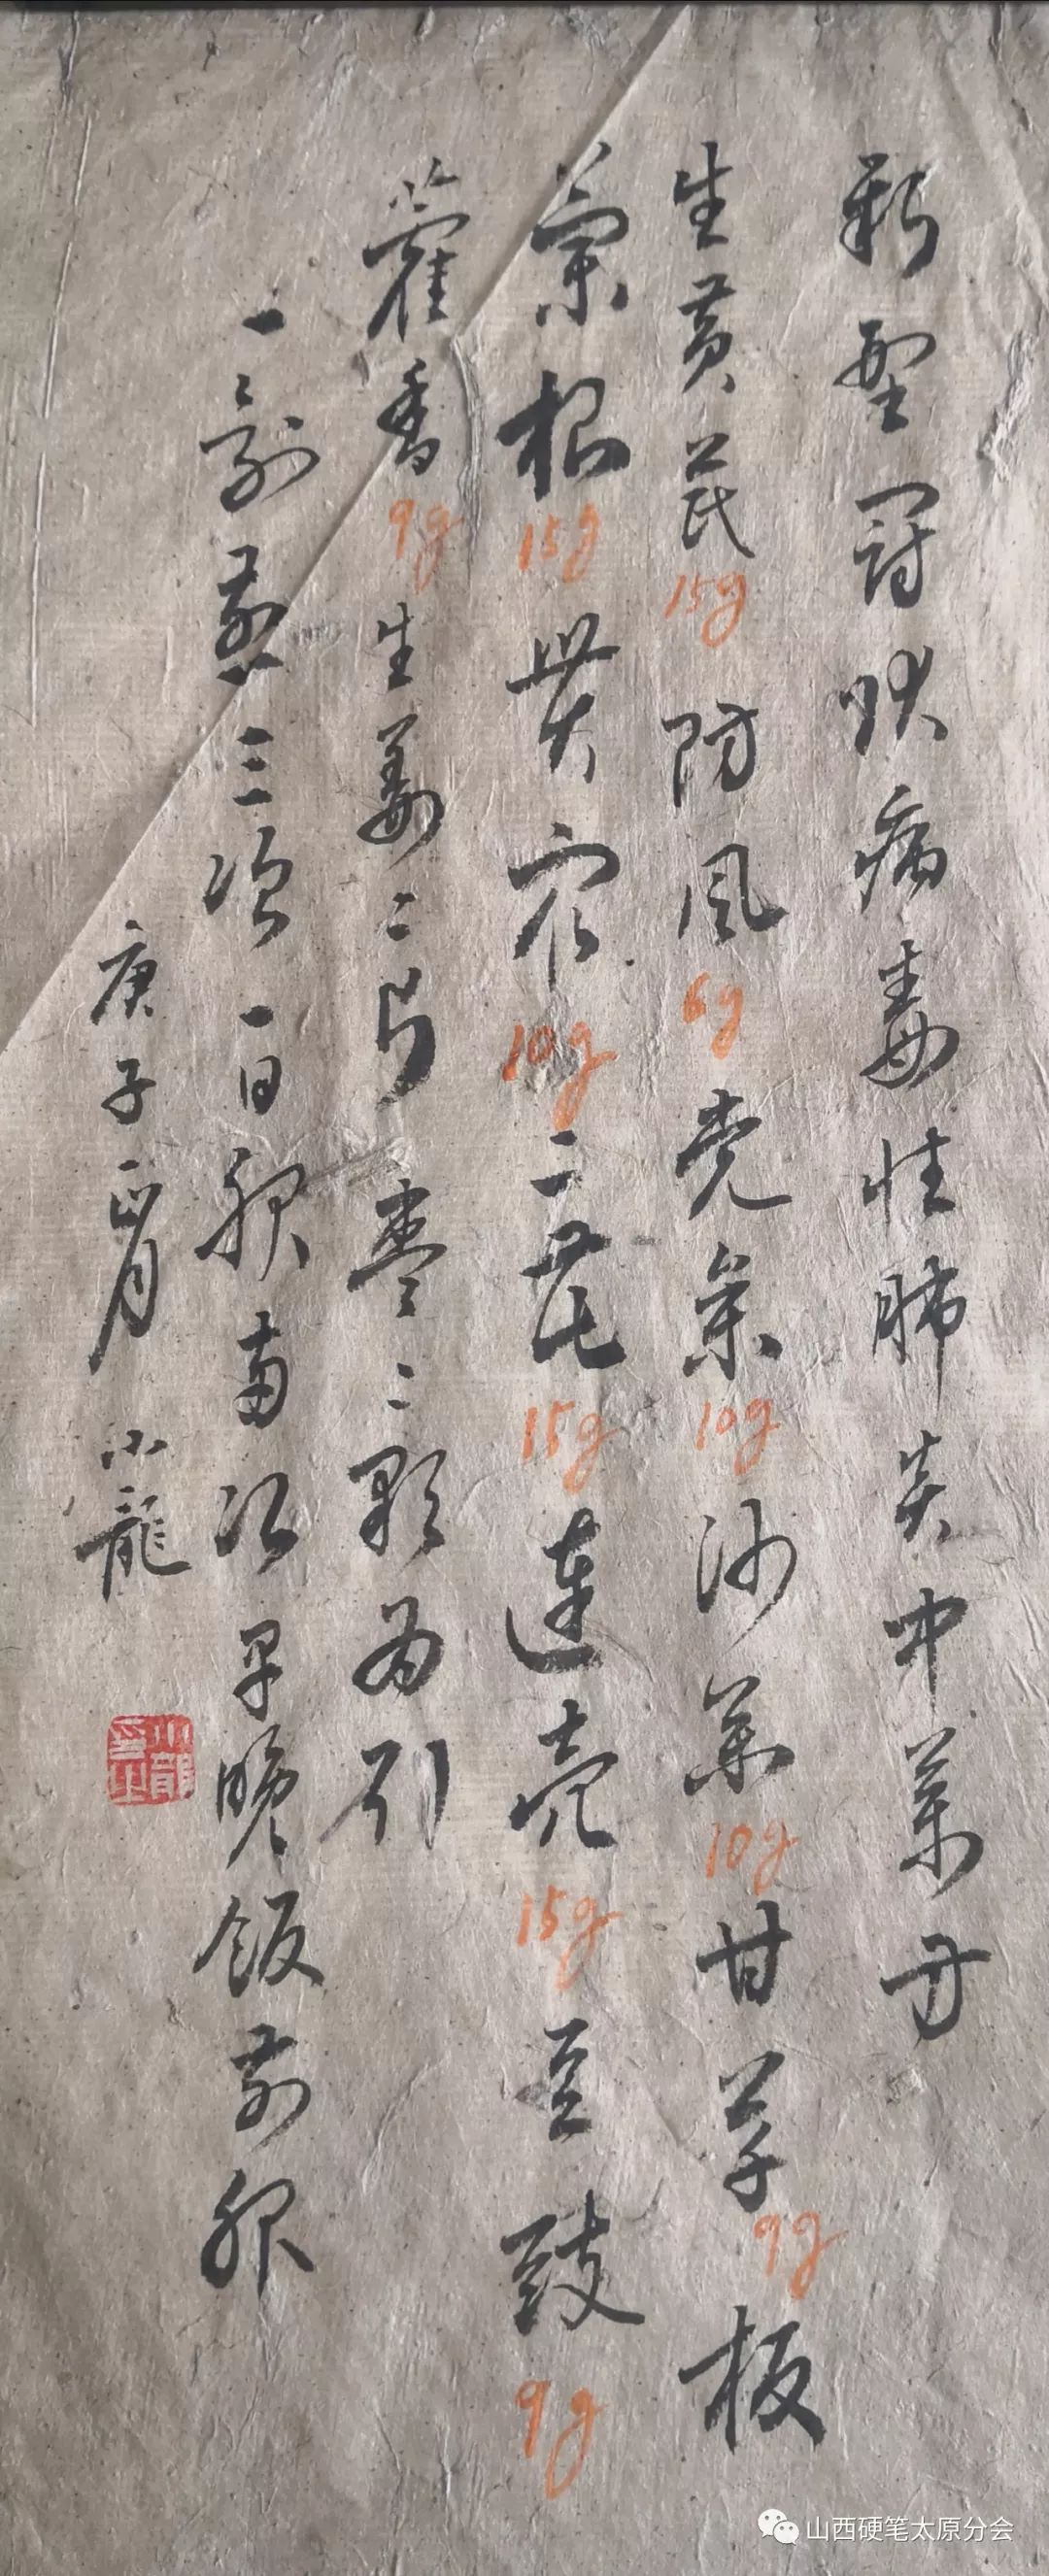 新型冠状病毒性肺炎中药方
生黄芪15g防风6g党参10g沙参10g甘草9g板
蓝根15g贯众10g二花15g连壳15g豆豉9g
藿香9g生姜二片枣二颗为引
一剂煎三次一日服两次早晚饭前服
庚子正月 小龍
山西硬笔太原分会